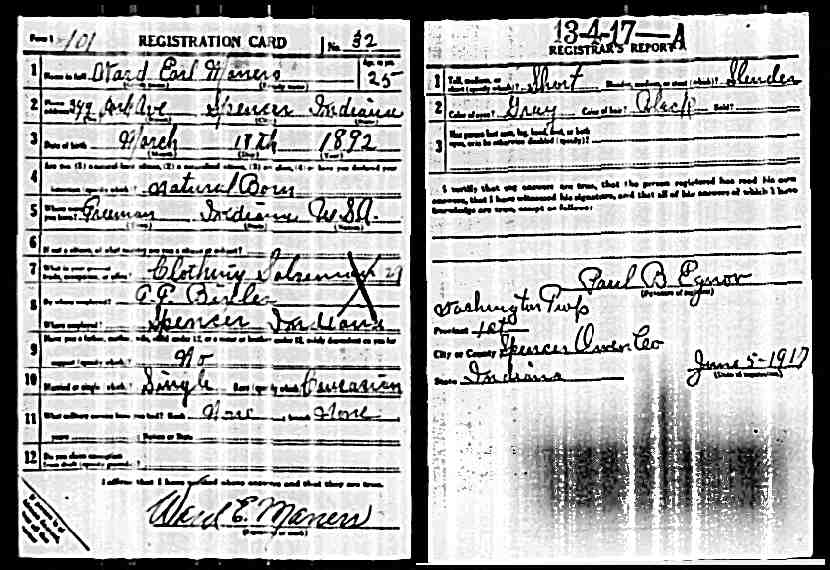 Form 1 101 REGISTRATION CARD No. 32
1 Name in full Ward Earl Maners Age, in yrs. 25
2 Home address 342 Park Ave Spencer Indiana
3 Date of birth March 18th 1892
4 Are you (1) a natural-born citizen, (2) a naturalized citizen, (3) an alien, (4) or have you declared your
intention (specify which)? Natural Born
5 Where were you born? Freeman Indiana U.S.A.
6 If not a citizen, of what country are you a citizen or subject?
7 What is your present trade, occupation, or office? Clothing Salesman 29
8 By whom employed?
Where employed? Spencer Indiana
9 Have you a father, mother, wife, child under 12, or a sister or brother under 12, solely dependent on you for
support (specify which)? No
10 Married or single (which)? Single Race (specify which)? Caucasian
11 What military service have you had? Rank None; branch None
years; Nation or State
12 Do you claim exemption from draft (specify grounds)?
I affirm that I have verified above answers and that they are true.
Ward E. Maners
(Signature or mark)
13-4-17-A
REGISTRAR'S REPORT
1 Tall, medium, or short (specify which)? Short Slender, medium, or stout (which)? Slender
2 Color of eyes? Gray Color of hair? Black Bald?
3 Has person lost arm, leg, hand, foot, or both
eyes, or is he otherwise disabled (specify)?
I certify that my answers are true, that the person registered has read his own
answers, that I have witnessed his signature, and that all of his answers of which I have
knowledge are true, except as follows:
Paul B Egnor
(Signature of registrar)
Washington Twp
Precinct 1st
City or County Spencer Owen Co
State Indiana June 5-1917
(Date of registration)